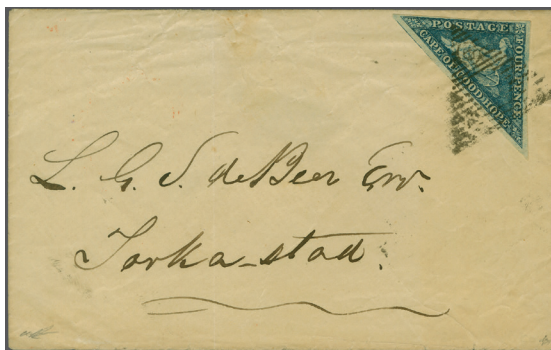 POSTAGE
FOUR PENCE
CAPE OF GOOD HOPE
L. G. S. de Beer Esqr.
Tarka-stad.